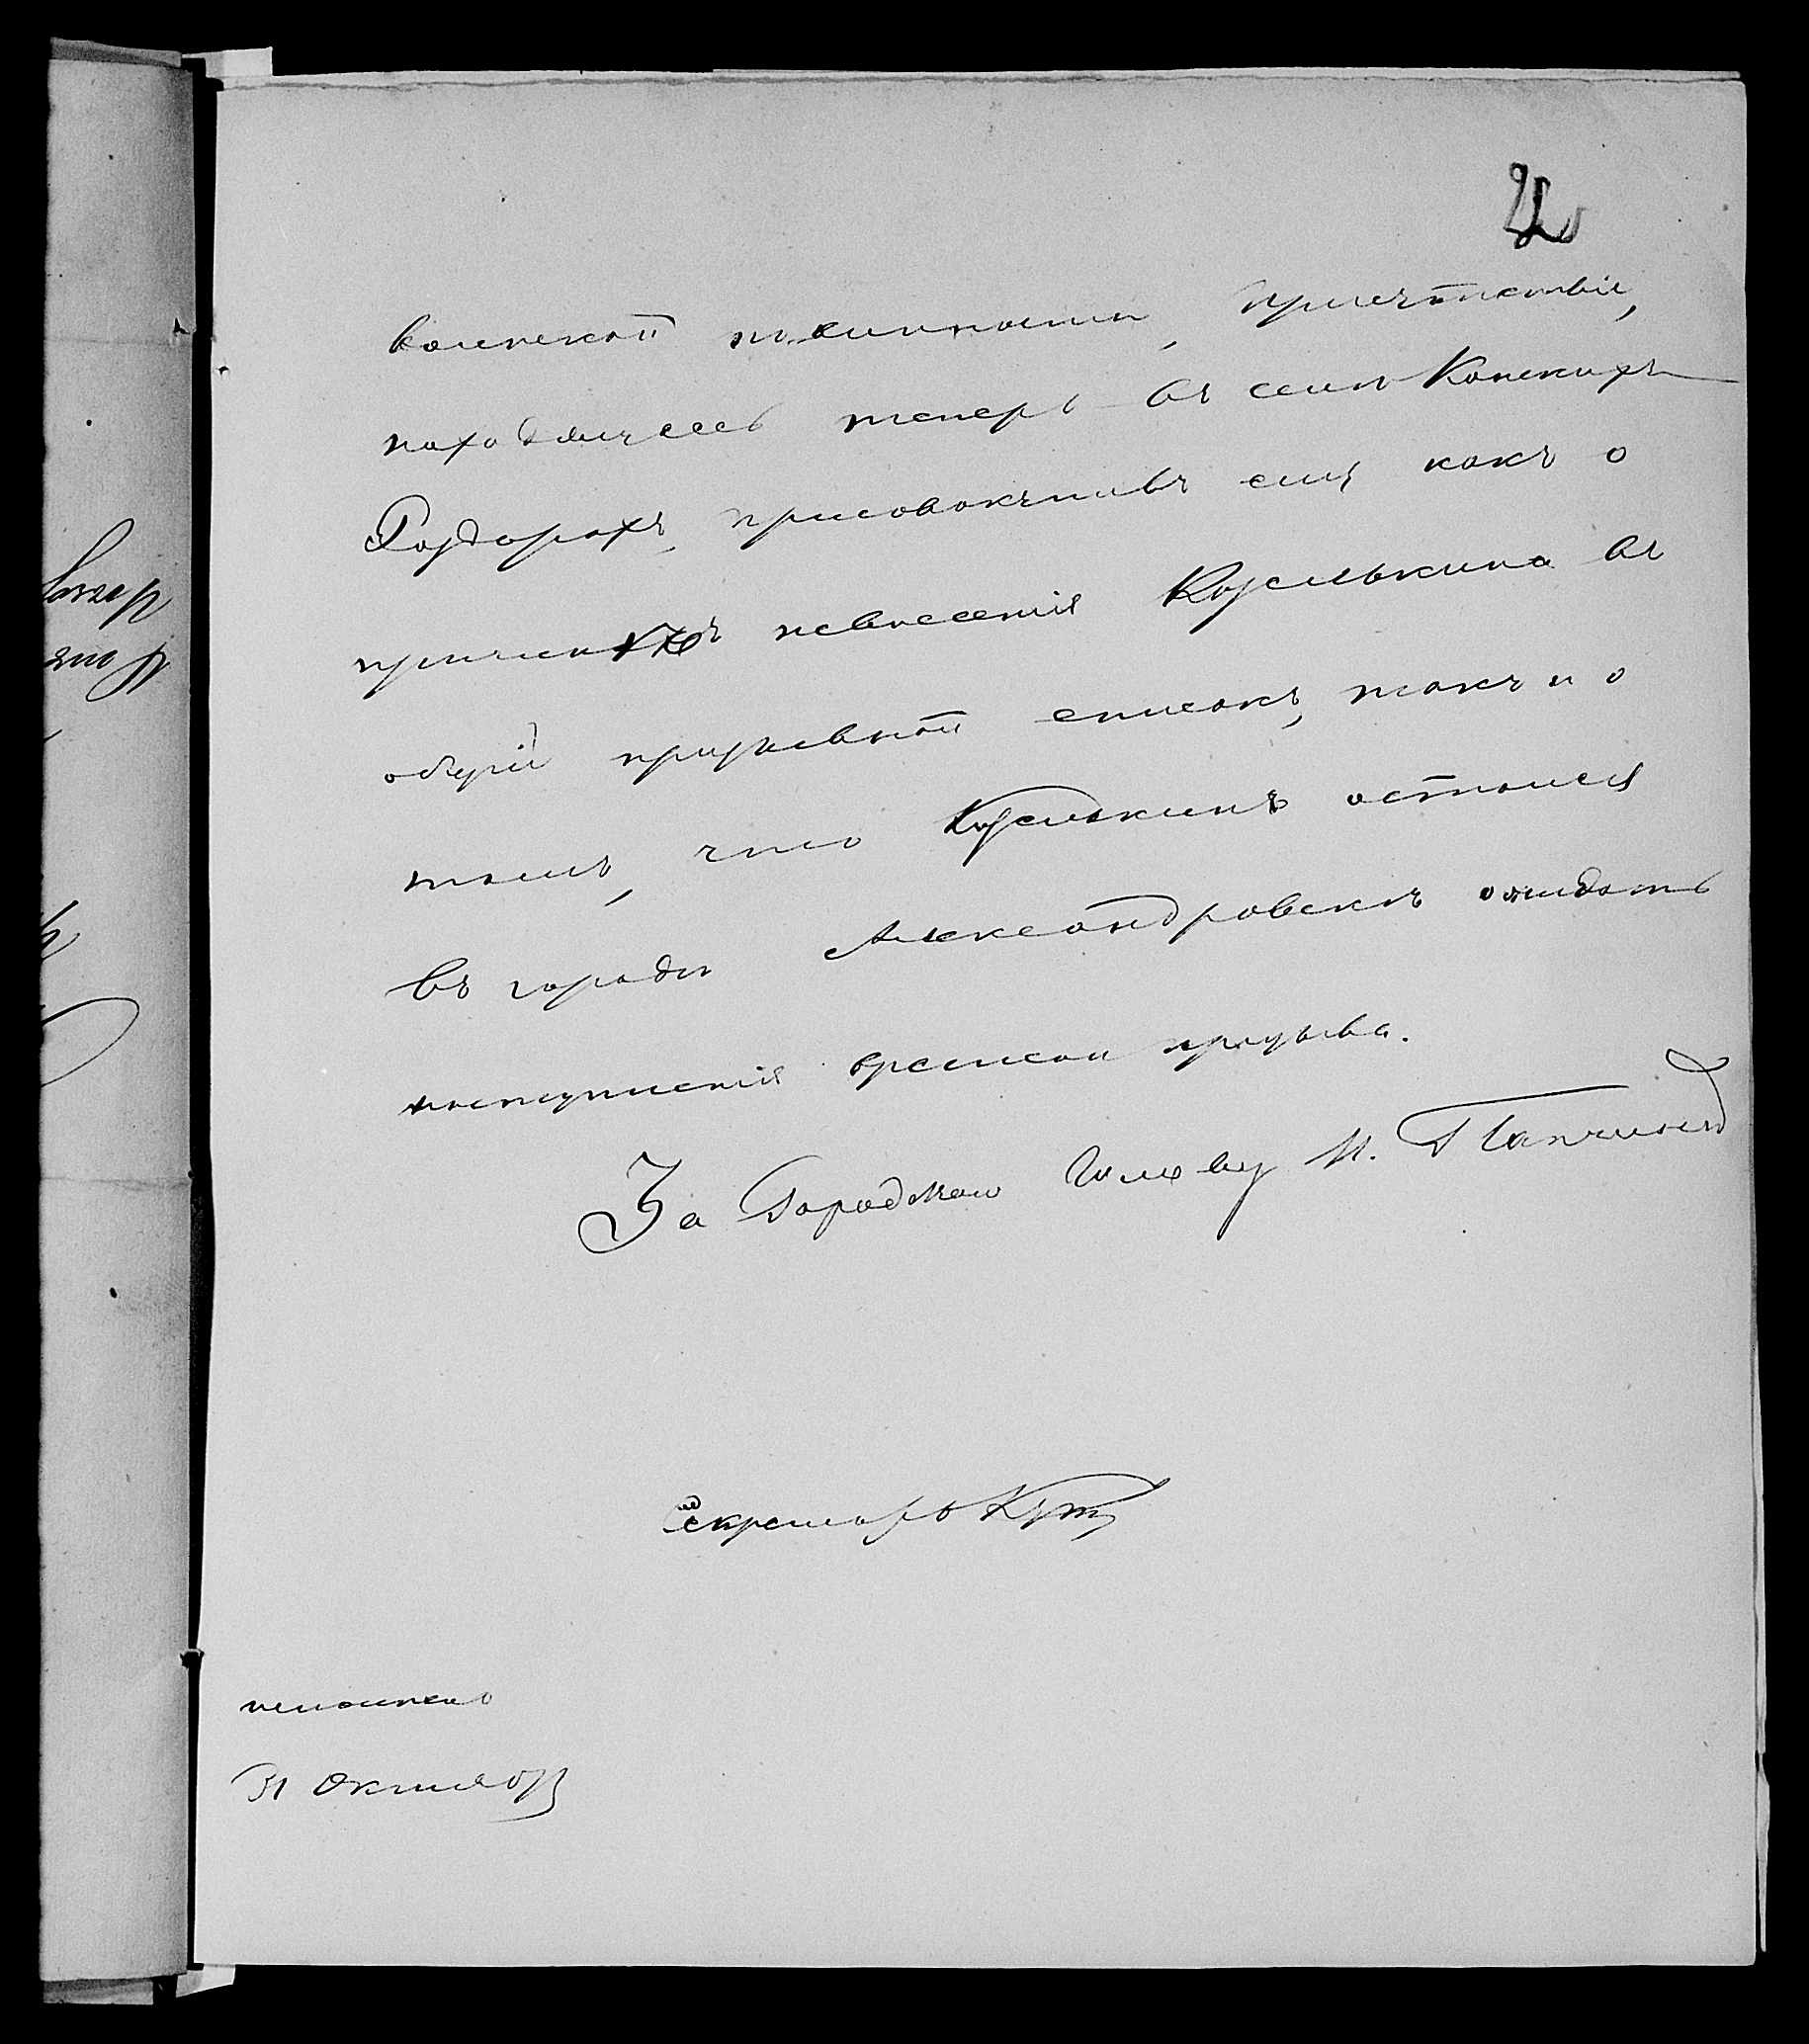 воинской повинности, присутствие,
находящееся теперь въ селѣ Конскихъ
Раздорахъ, присовокупивъ ему какъ о
причинахъ невнесенія Кузелькина въ
общій призывной списокъ, такъ и о
томъ, что Кузелькинъ остался
въ городѣ Александровскѣ ожидать
наступленія времени призыва.
За Городскаго Голову И.
Секретарь
исполнено
31 Октября